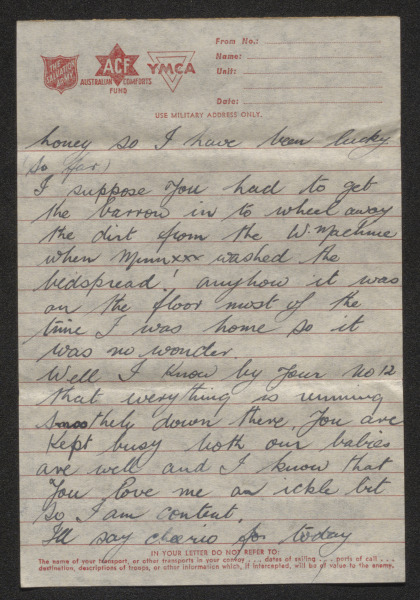 THE SALVATION ARMY
ACF
AUSTRALIAN COMFORTS FUND
YMCA
From No.:
Name:
Unit:
Date:
USE MILITARY ADDRESS ONLY.
honey so I have been lucky
(so far)
I suppose you had to get
the barrow in to wheel away
the dirt from the W. Machine
when Mumxxx washed the
bedspread! anyhow it was
on the floor most of the
time I was home so it
was no wonder.
Well I know by your No 12
that everything is running
smoothely down there, You are
kept busy both our babies
are well and I know that
You love me an ickle bit
so I am content.
I'll say cheerio for today
IN YOUR LETTER DO NOT REFER TO:
The name of your transport, or other transports in your convoy . . . dates of sailing . . . ports of call . . .
destination, descriptions of troops, or other information which, if intercepted, will be of value to the enemy.